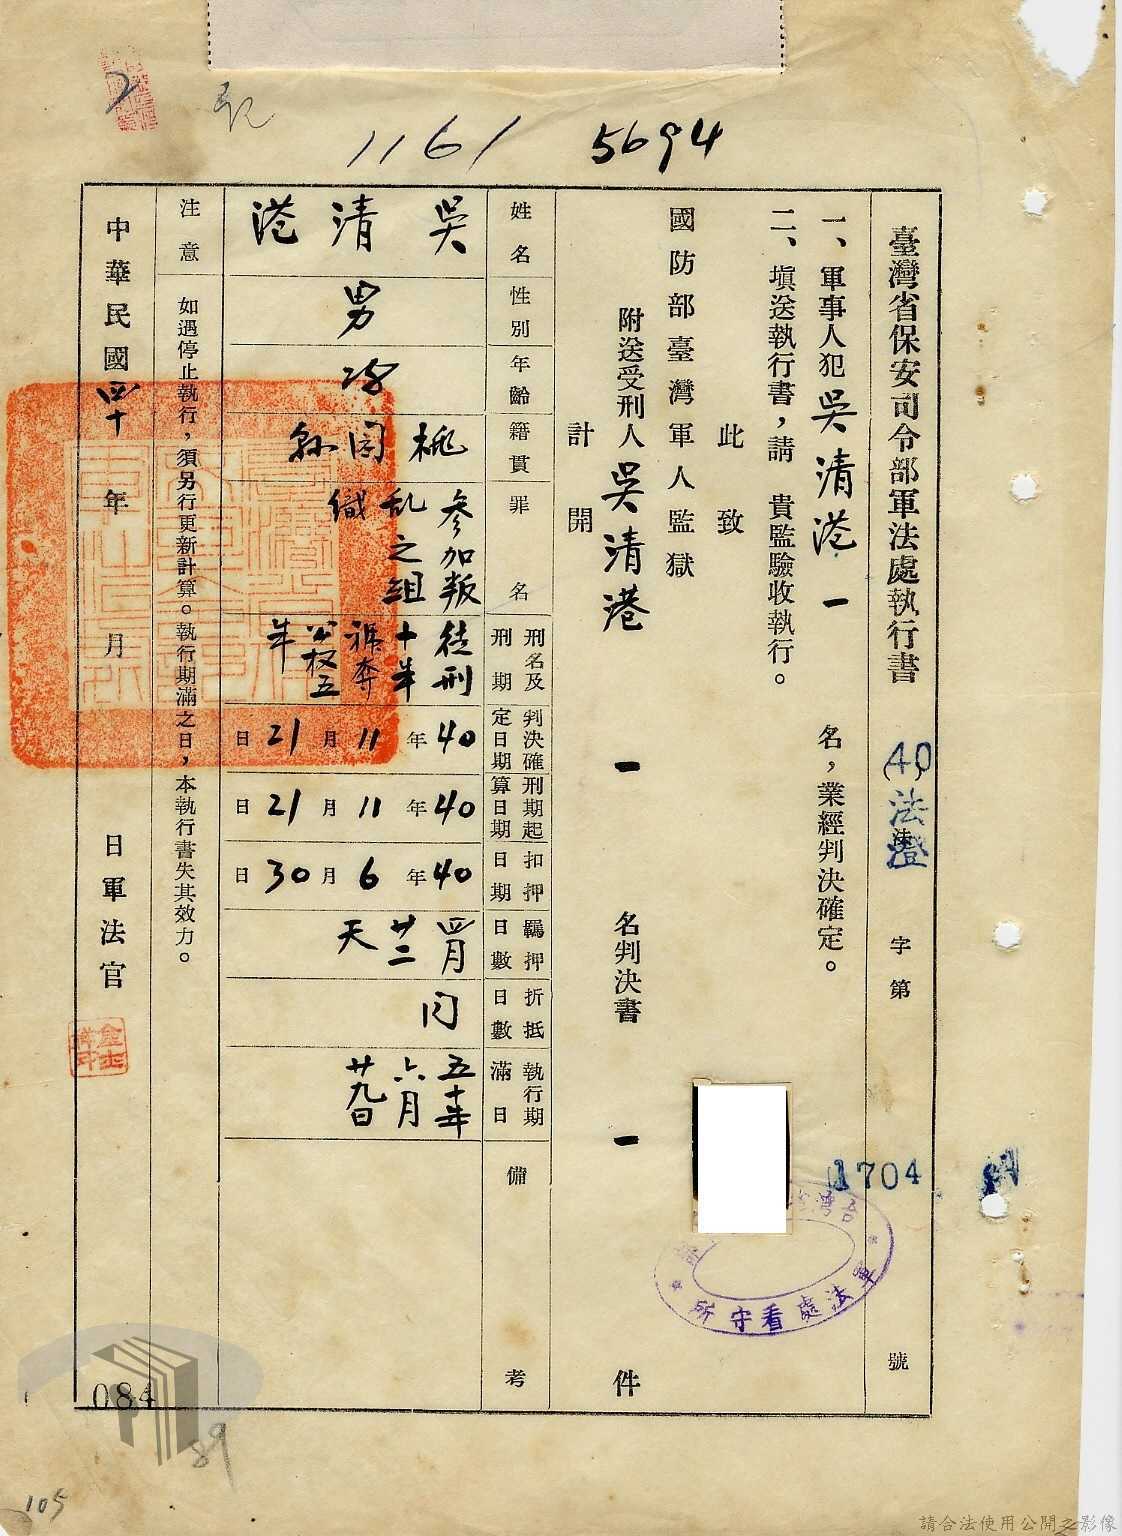 1161 5694
臺灣省保安司令部軍法處執行書 (40) 法澄 字第 1704 號
一、軍事人犯吳清港一 名，業經判決確定。
二、填送執行書，請 貴監驗收執行。
此致
國防部臺灣軍人監獄
附送受刑人吳清港 一 名判決書 一 件
計開
姓名 吳清港
性別 男
年齡
籍貫 桃園縣
罪名 參加叛乱之組織
刑名及刑期 徒刑十年褫奪公权五年
判決確定日期 40年11月21日
刑期起算日期 40年11月21日
扣押日期 40年6月30日
羈押日數 四月廿二天
折抵日數 同
執行期滿日 五十年六月廿九日
備考
注意 如遇停止執行，須另行更新計算。執行期滿之日，本執行書失其效力。
中華民國四十年 月 日軍法官
軍法處看守所
084
89
105
請合法使用公開之影像